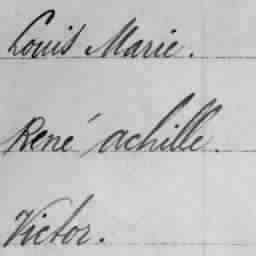 Louis Marie.
René achille.
Victor.